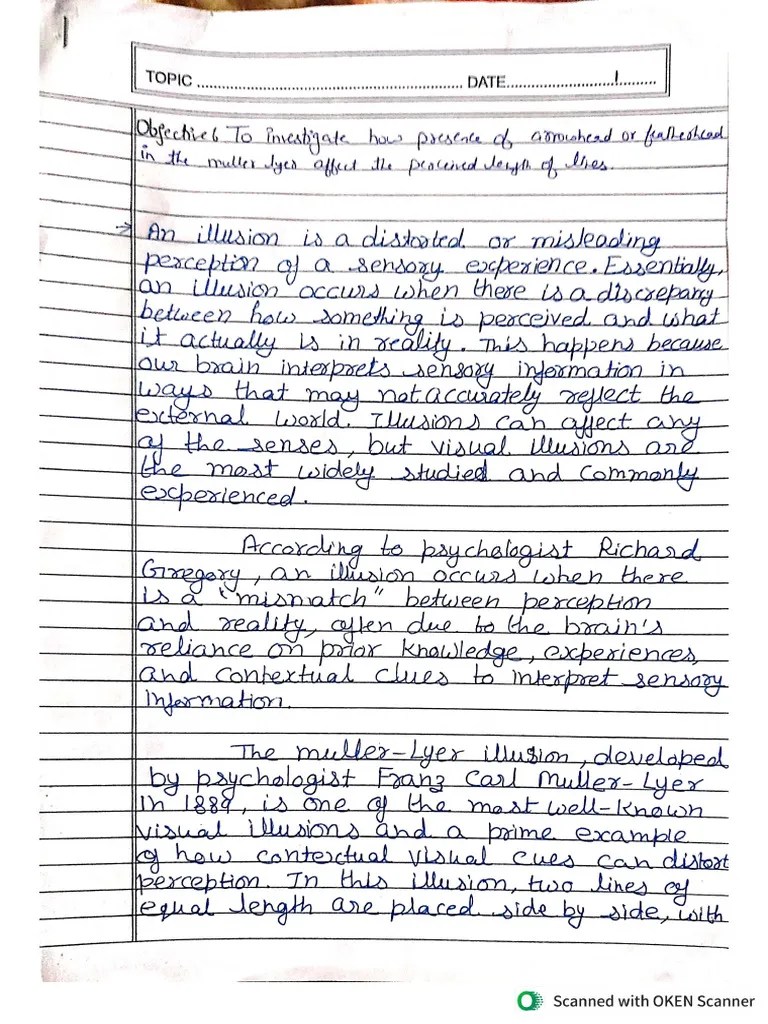 TOPIC ................ DATE................/.........
Objective: To investigate how presence of arrowhead or featherhead
in the muller lyer affect the perceived length of lines.
→ An illusion is a distorted or misleading
perception of a sensory experience. Essentially,
an illusion occurs when there is a discrepancy
between how something is perceived and what
it actually is in reality. This happens because
our brain interprets sensory information in
ways that may not accurately reflect the
external world. Illusions can affect any
of the senses, but visual illusions are
the most widely studied and commonly
experienced.
According to psychologist Richard
Gregory, an illusion occurs when there
is a "mismatch" between perception
and reality, often due to the brain's
reliance on prior knowledge, experiences,
and contextual clues to interpret sensory
information.
The muller-Lyer illusion, developed
by psychologist Franz Carl Muller-Lyer
in 1889, is one of the most well-known
visual illusions and a prime example
of how contextual visual cues can distort
perception. In this illusion, two lines of
equal length are placed side by side, with
Scanned with OKEN Scanner